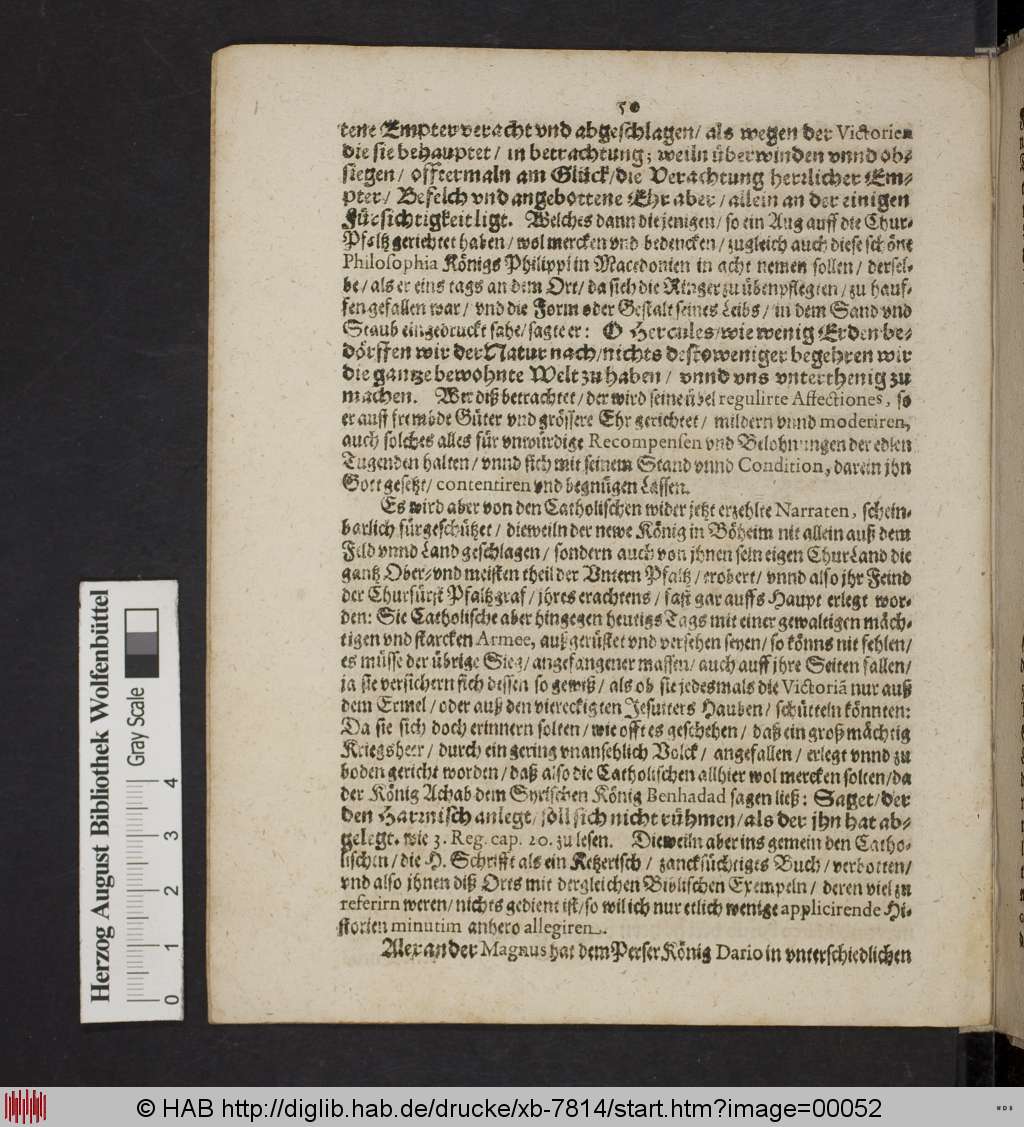 50
tene Empter veracht vnd abgeschlagen/ als wegen der Victorien
die sie behauptet/ in betrachtung; weiln überwinden vnnd ob-
siegen/ offtermaln am Glück/die Verachtung herrlicher Em-
pter/ Befelch vnd angebottene Ehr aber/ allein an der einigen
Fürsichtigkeit ligt. Welches dann die jenigen/ so ein Aug auff die Chur-
Pfaltz gerichtet haben/ wol mercken vnd bedencken/ zugleich auch diese schöne
Philosophia Königs Philippi in Macedonien in acht nemen sollen/ dersel-
be/ als er eins tags an dem Ort/ da sich die Ringer zu üben pflegten/ zu hauf-
fen gefallen war/ vnd die Form oder Gestalt seines Leibs/ in dem Sand vnd
Staub eingedruckt sahe/ sagte er: O Hercules/ wie wenig Erden be-
dörffen wir der Natur nach/nichts desto weniger begehren wir
die gantze bewohnte Welt zu haben/ vnnd vns vnterthenig zu
machen. Wer diß betrachtet/ der wird seine übel regulirte Affectiones, so
er auff frembde Güter vnd grössere Ehr gerichtet/ mildern vnnd moderiren,
auch solches alles für vnwürdige Recompensen vnd Belohnungen der edlen
Tugenden halten/ vnnd sich mit seinem Stand vnnd Condition, darein jhn
Gott gesetzt/ contentiren vnd begnügen lassen.
Es wird aber von den Catholischen wider jetzt erzehlte Narraten, schein-
barlich fürgeschützet/ dieweiln der newe König in Böheim nit allein auß dem
Feld vnnd Land geschlagen/ sondern auch von jhnen sein eigen ChurLand die
gantz Ober- vnd meisten theil der Vntern Pfaltz/ erobert/ vnnd also jhr Feind
der Churfürst Pfaltzgraf/ jhres erachtens/ fast gar auffs Haupt erlegt wor-
den: Sie Catholische aber hingegen heutigs Tags mit einer gewaltigen mäch-
tigen vnd starcken Armee, außgerüstet vnd versehen seyen/ so könns nit fehlen/
es müsse der übrige Sieg/ angefangener massen/ auch auff jhre Seiten fallen/
ja sie versichern sich dessen so gewiß/ als ob sie jedesmals die Victoriã nur auß
dem Ermel/ oder auß den viereckigten Jesuiters Hauben/ schütteln könnten:
Da sie sich doch erinnern solten/ wie offt es geschehen/ daß ein groß mächtig
Kriegsheer/ durch ein gering vnansehlich Volck/ angefallen/ erlegt vnnd zu
boden gericht worden/ daß also die Catholischen allhier wol mercken solten/da
der König Achab dem Syrischen König Benhadad sagen ließ: Saget/ der
den Harnisch anlegt/ soll sich nicht rühmen/ als der jhn hat ab-
gelegt. wie 3. Reg. cap. 20. zu lesen. Dieweiln aber ins gemein den Catho-
lischen/ die H. Schrifft als ein Ketzerisch/ zancksüchtiges Buch/ verbotten/
vnd also jhnen diß Orts mit dergleichen Biblischen Exempeln/ deren viel zu
referirn weren/ nichts gedient ist/ so wil ich nur etlich wenige applicirende Hi-
storien minutim anhero allegiren.
Alexander Magnus hat dem Perser König Dario in vnterschiedlichen
Herzog August Bibliothek Wolfenbüttel
Gray Scale
0 1 2 3 4
© HAB http://diglib.hab.de/drucke/xb-7814/start.htm?image=00052